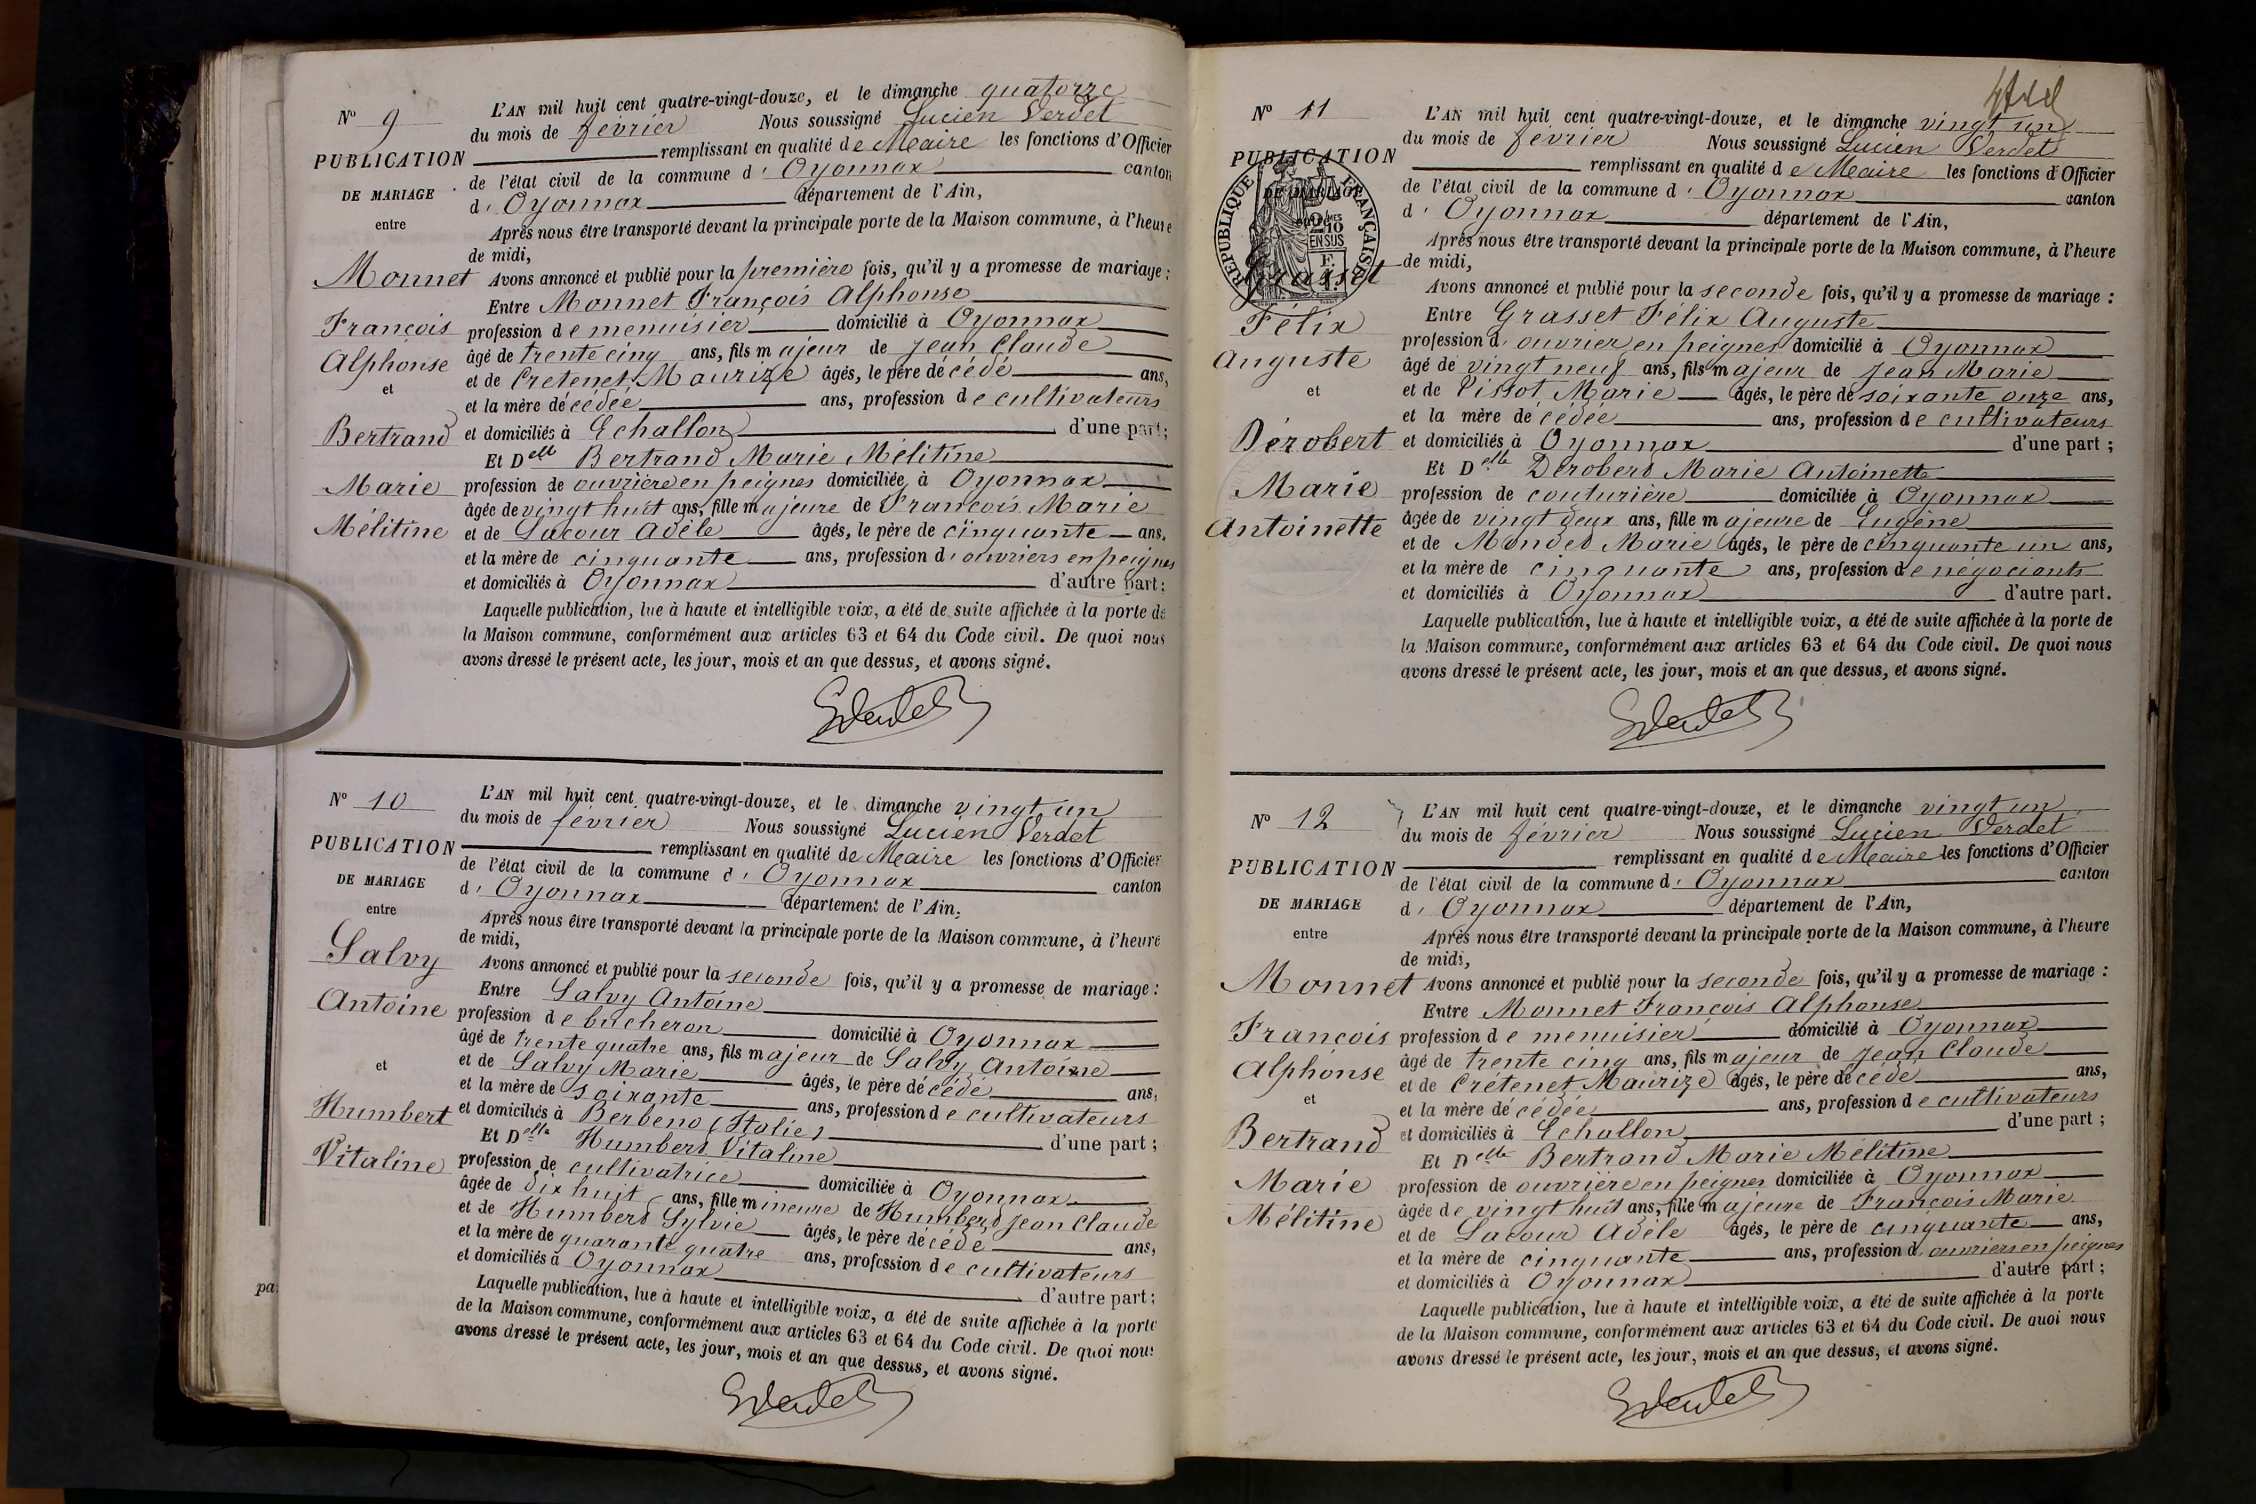 N° 9
PUBLICATION
DE MARIAGE
entre
Monnet
François
Alphonse
et
Bertrand
Marie
Mélitine
L'AN mil huit cent quatre-vingt-douze, et le dimanche quatorze
du mois de février Nous soussigné Lucien Verdet
remplissant en qualité de Maire les fonctions d'Officier
de l'état civil de la commune d'Oyonnax canton
d'Oyonnax département de l'Ain,
Après nous être transporté devant la principale porte de la Maison commune, à l'heure
de midi,
Avons annoncé et publié pour la première fois, qu'il y a promesse de mariage :
Entre Monnet François Alphonse
profession de menuisier domicilié à Oyonnax
âgé de trente cinq ans, fils majeur de Jean Claude
et de Cretenet Maurize âgés, le père décédé ans,
et la mère décédée ans, profession de cultivateurs
et domiciliés à Echallon d'une part;
Et Delle Bertrand Marie Mélitine
profession de ouvrière en peignes domiciliée à Oyonnax
âgée de vingt huit ans, fille majeure de François Marie
et de Lacour Adèle âgés, le père de cinquante ans,
et la mère de cinquante ans, profession d'ouvriers en peignes
et domiciliés à Oyonnax d'autre part;
Laquelle publication, lue à haute et intelligible voix, a été de suite affichée à la porte de
la Maison commune, conformément aux articles 63 et 64 du Code civil. De quoi nous
avons dressé le présent acte, les jour, mois et an que dessus, et avons signé.
N° 10
PUBLICATION
DE MARIAGE
entre
Salvy
Antoine
et
Humbert
Vitaline
L'AN mil huit cent quatre-vingt-douze, et le dimanche vingt un
du mois de février Nous soussigné Lucien Verdet
remplissant en qualité de Maire les fonctions d'Officier
de l'état civil de la commune d'Oyonnax canton
d'Oyonnax département de l'Ain,
Après nous être transporté devant la principale porte de la Maison commune, à l'heure
de midi,
Avons annoncé et publié pour la seconde fois, qu'il y a promesse de mariage :
Entre Salvy Antoine
profession de bucheron domicilié à Oyonnax
âgé de trente quatre ans, fils majeur de Salvy Antoine
et de Salvy Marie âgés, le père décédé ans,
et la mère de soixante ans, profession de cultivateurs
et domiciliés à Berbeno (Italie) d'une part;
Et Delle Humbert Vitaline
profession de cultivatrice domiciliée à Oyonnax
âgée de dix huit ans, fille mineure de Humbert Jean Claude
et de Humbert Sylvie âgés, le père décédé ans,
et la mère de quarante quatre ans, profession de cultivateurs
et domiciliés à Oyonnax d'autre part;
Laquelle publication, lue à haute et intelligible voix, a été de suite affichée à la porte
de la Maison commune, conformément aux articles 63 et 64 du Code civil. De quoi nous
avons dressé le présent acte, les jour, mois et an que dessus, et avons signé.
pa
N° 11
PUBLICATION
DE MARIAGE
RÉPUBLIQUE FRANÇAISE
2/10 EN SUS
Grasset
Félix
Auguste
et
Dérobert
Marie
Antoinette
L'AN mil huit cent quatre-vingt-douze, et le dimanche vingt un
du mois de février Nous soussigné Lucien Verdet
remplissant en qualité de Maire les fonctions d'Officier
de l'état civil de la commune d'Oyonnax canton
d'Oyonnax département de l'Ain,
Après nous être transporté devant la principale porte de la Maison commune, à l'heure
de midi,
Avons annoncé et publié pour la seconde fois, qu'il y a promesse de mariage :
Entre Grasset Félix Auguste
profession d'ouvrier en peignes domicilié à Oyonnax
âgé de vingt neuf ans, fils majeur de Jean Marie
et de Pissot Marie âgés, le père de soixante onze ans,
et la mère décédée ans, profession de cultivateurs
et domiciliés à Oyonnax d'une part ;
Et Delle Dérobert Marie Antoinette
profession de couturière domiciliée à Oyonnax
âgée de vingt deux ans, fille majeure de Eugène
et de Mondet Marie âgés, le père de cinquante un ans,
et la mère de cinquante ans, profession de négociants
et domiciliés à Oyonnax d'autre part.
Laquelle publication, lue à haute et intelligible voix, a été de suite affichée à la porte de
la Maison commune, conformément aux articles 63 et 64 du Code civil. De quoi nous
avons dressé le présent acte, les jour, mois et an que dessus, et avons signé.
N° 12
PUBLICATION
DE MARIAGE
entre
Monnet
François
Alphonse
et
Bertrand
Marie
Mélitine
L'AN mil huit cent quatre-vingt-douze, et le dimanche vingt un
du mois de février Nous soussigné Lucien Verdet
remplissant en qualité de Maire les fonctions d'Officier
de l'état civil de la commune d'Oyonnax canton
d'Oyonnax département de l'Ain,
Après nous être transporté devant la principale porte de la Maison commune, à l'heure
de midi,
Avons annoncé et publié pour la seconde fois, qu'il y a promesse de mariage :
Entre Monnet François Alphonse
profession de menuisier domicilié à Oyonnax
âgé de trente cinq ans, fils majeur de Jean Claude
et de Crétenet Maurize âgés, le père décédé ans,
et la mère décédée ans, profession de cultivateurs
et domiciliés à Echallon d'une part ;
Et Delle Bertrand Marie Mélitine
profession de ouvrière en peignes domiciliée à Oyonnax
âgée de vingt huit ans, fille majeure de François Marie
et de Lacour Adèle âgés, le père de cinquante ans,
et la mère de cinquante ans, profession d'ouvriers en peignes
et domiciliés à Oyonnax d'autre part ;
Laquelle publication, lue à haute et intelligible voix, a été de suite affichée à la porte
de la Maison commune, conformément aux articles 63 et 64 du Code civil. De quoi nous
avons dressé le présent acte, les jour, mois et an que dessus, et avons signé.